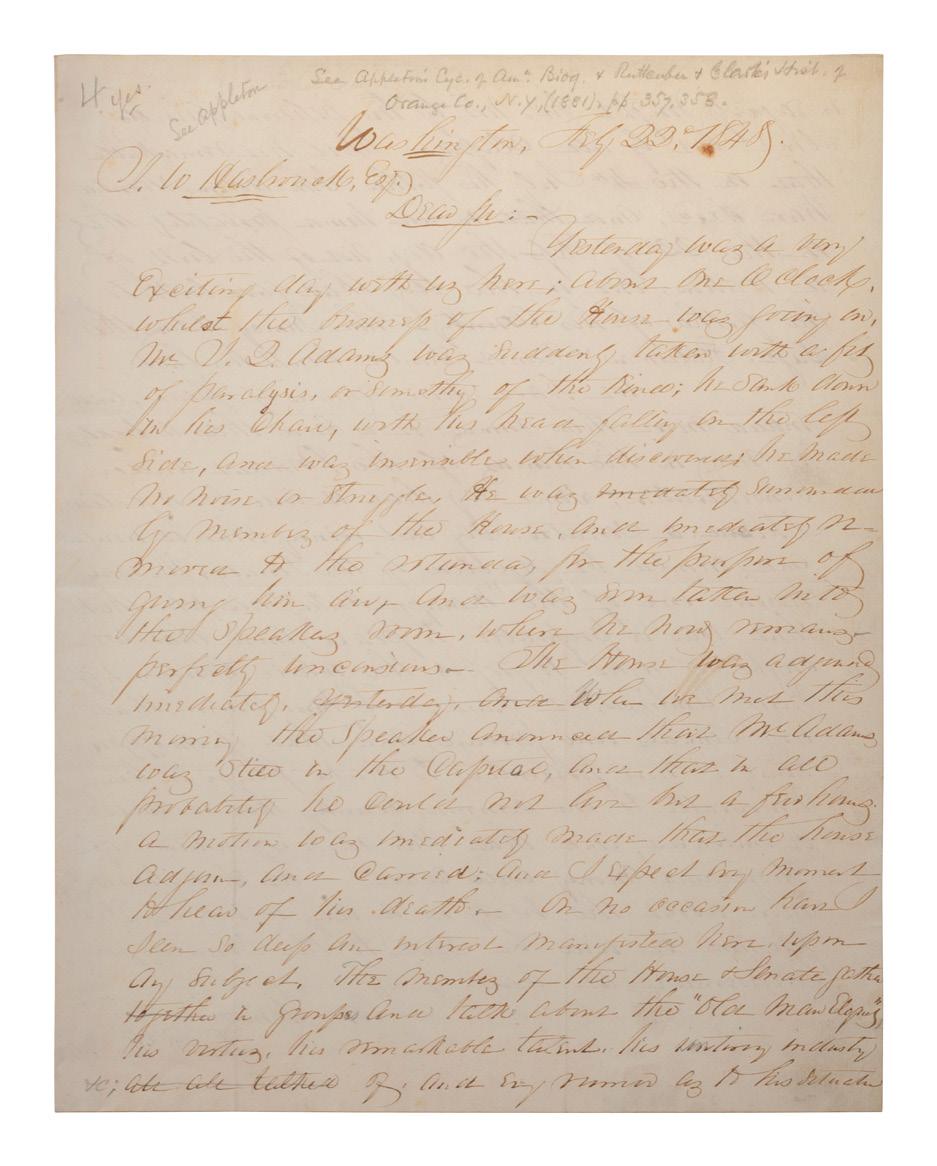 4 yes.
See Appleton
See Appleton's Cyc. of Am. Biog. & Ruttenber & Clark's Hist. of
Orange Co., N.Y., (1881), pp. 357, 358.
Washington, Feby 22, 1848.
J. W Hasbrouck, Esq.
Dear Sir:-
Yesterday was a very
Exciting day with us here; about one O Clock,
whilst the business of the House was going on,
Mr J. Q. Adams was suddenly taken with a fit
of paralysis, or somethig of the kind; he sank down
in his Chair, with his head falling on the left
side, and was insensible when discovered; he made
no noise or struggle. He was imediately surrounded
by members of the House, and imediately re-
moved to the rotunda, for the purpose of
giving him air, and was soon taken into
the speakers room, where he now remains
perfectly unconsious. The House was adjourned
imediately. Yesterday, and When we met this
morning the Speaker anounced that Mr Adams
was still in the Capitol, and that in all
probability he could not live but a few hours.
a motion was imediately made that the house
adjourn, and carried; and I expect evry moment
to hear of his death. On no occasion have I
seen so deep an interest manifested here upon
any subject. The members of the House & Senate gather
together in groups and talk about the "Old Man Eloquent",
his virtues, his remarkable talent, his untiring industry
&c; are all talked of, and evry rumor as to his situation